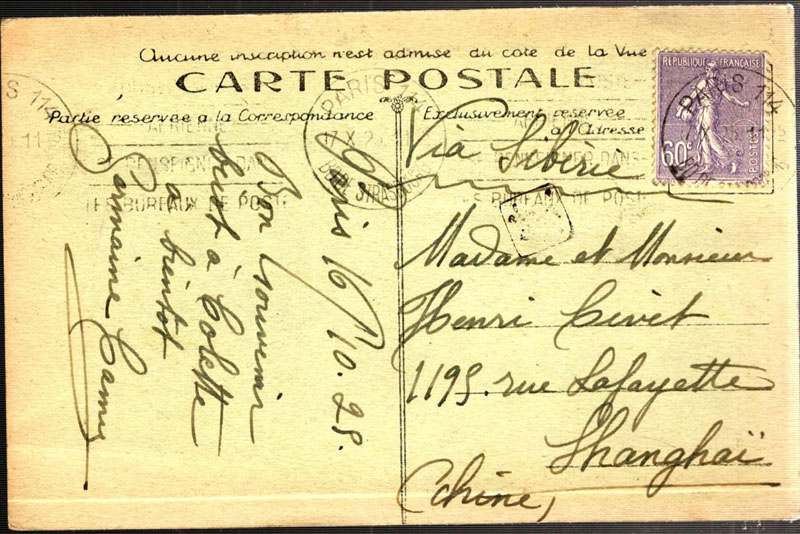 Aucune inscription n'est admise du cote de la Vue
CARTE POSTALE
Partie reservee a la Correspondance
Exclusivement reservee
a l'Adresse
REPUBLIQUE FRANÇAISE
60c
POSTES
PARIS 114
PARIS 114
17 X
AERIENNE
RENSEIGNER DANS
LES BUREAUX DE POSTE
Paris 16/10.28.
Bon souvenir
à Colette
a bientot
Germaine
Via Sibérie
Madame et Monsieur
Henri Civet
1195. rue Lafayette
Shanghaï
(Chine)